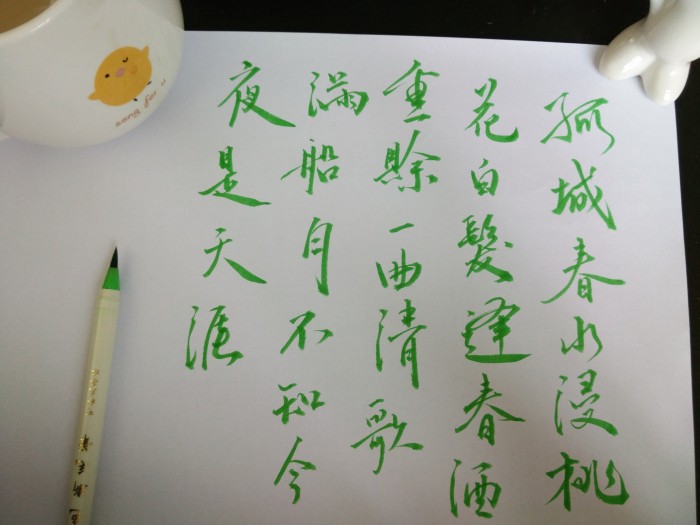 孤城春水浸桃
花白髮逢春酒
重賒一曲清歌
滿船月不知今
夜是天涯